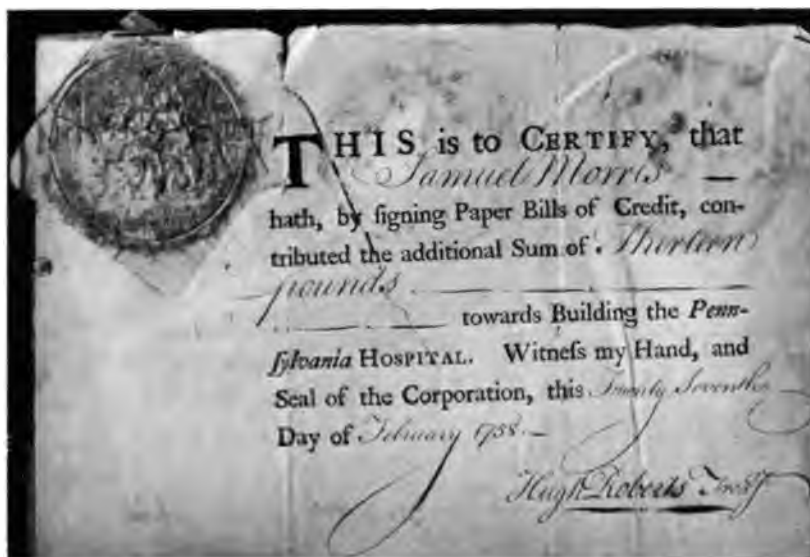 THIS is to CERTIFY, that
Samuel Morris —
hath, by ſigning Paper Bills of Credit, con-
tributed the additional Sum of . Thirteen
pounds
towards Building the Penn-
ſylvania HOSPITAL. Witneſs my Hand, and
Seal of the Corporation, this Twenty Seventh
Day of February 1758. —
Hugh Roberts Treas